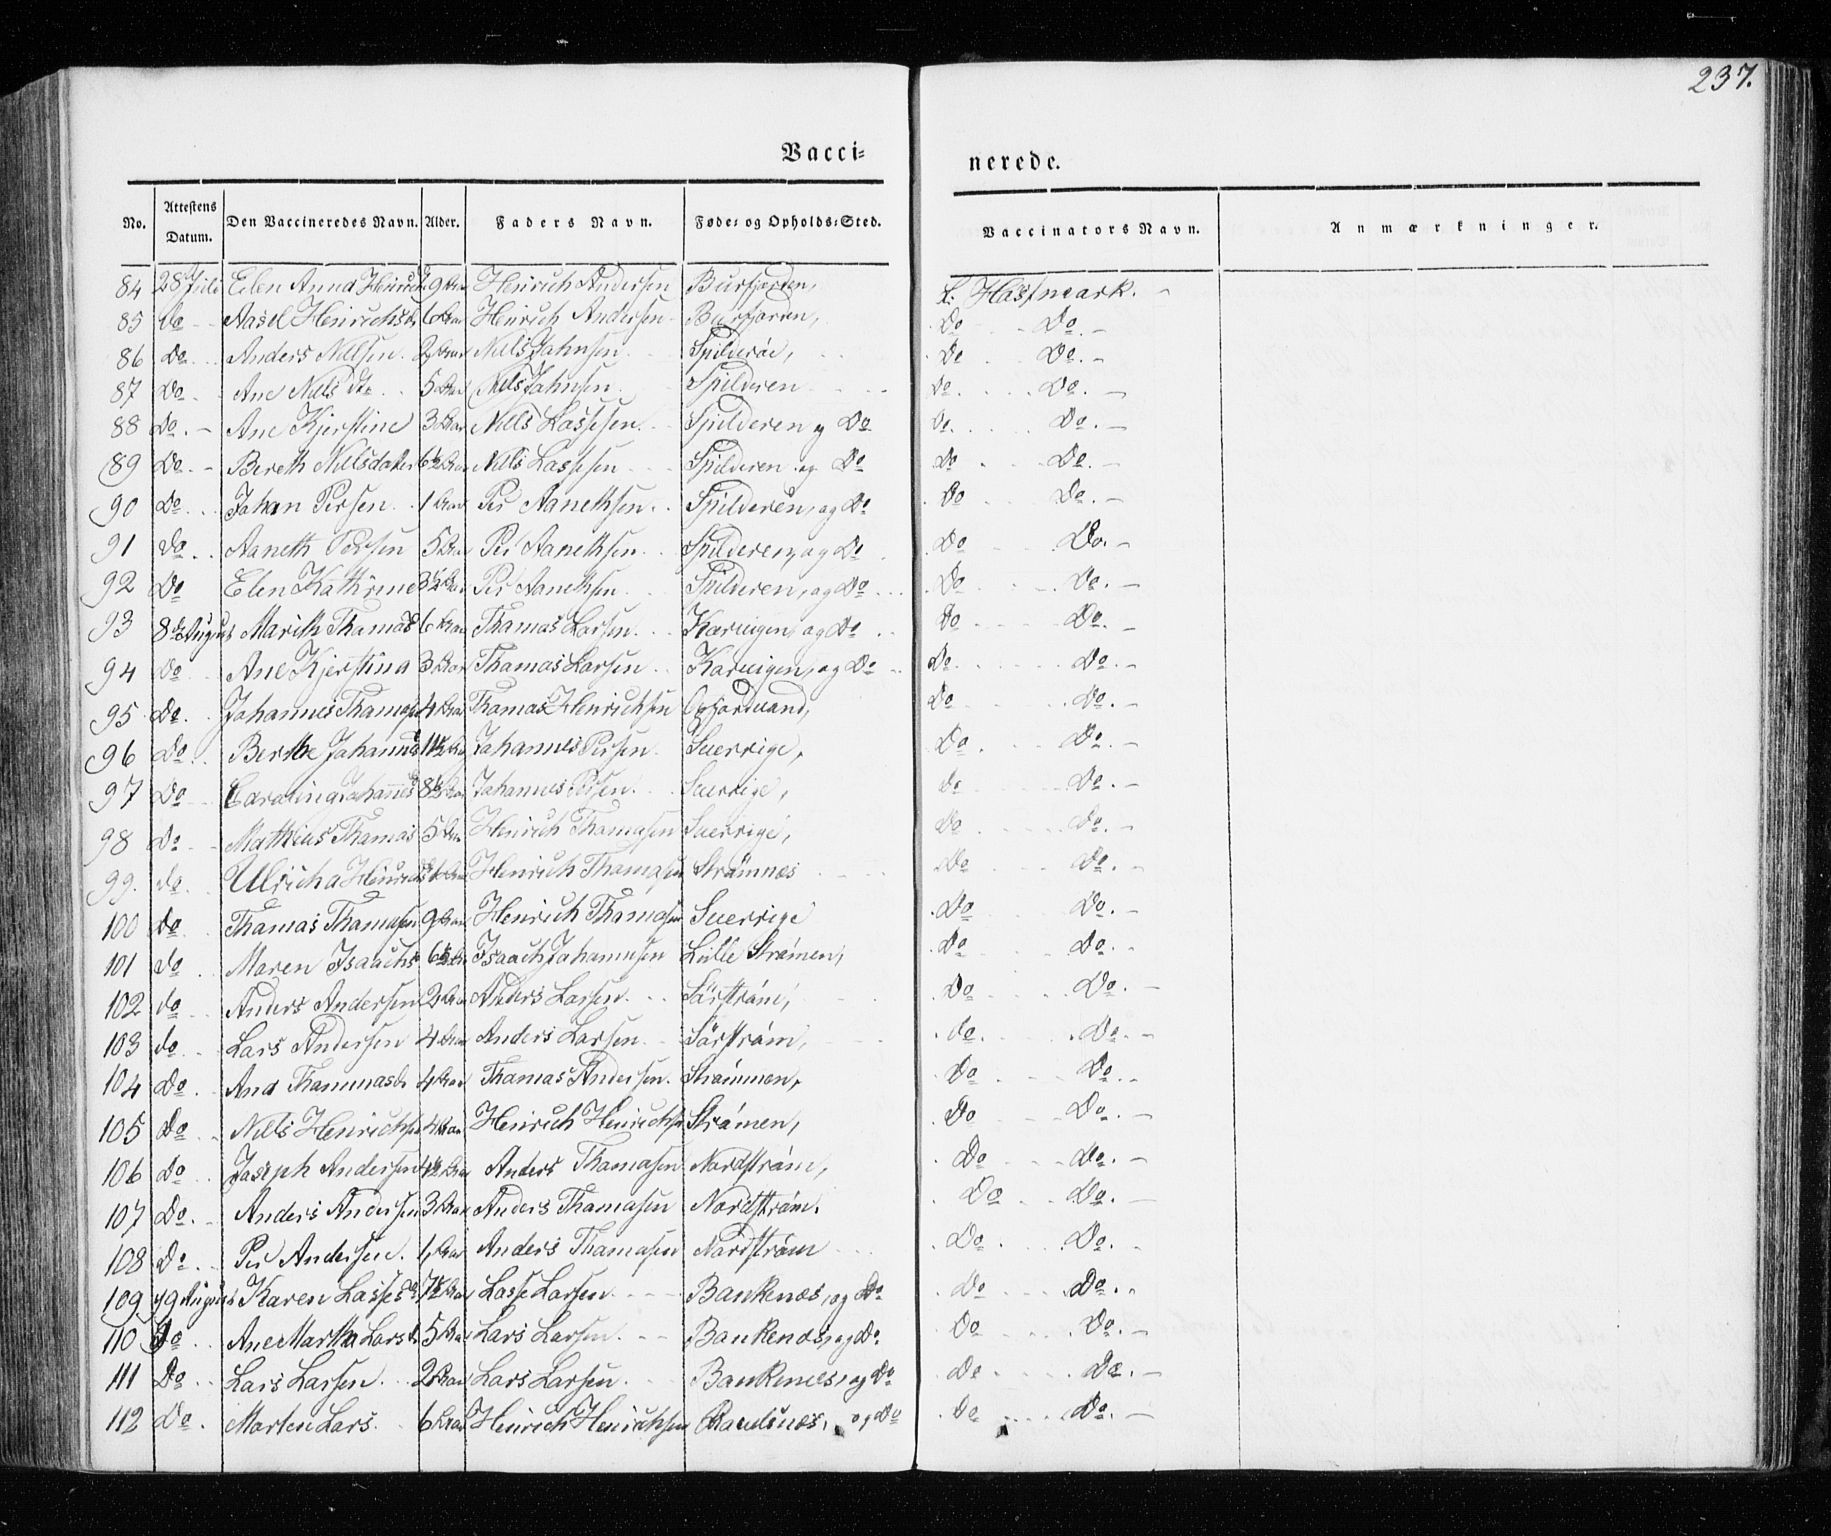 237.
Vacci= nerede.
No. Attestens Datum. Den Vaccineredes Navn. Alder. Faders Navn. Føde- og Opholds-Sted. Vaccinators Navn. Anmærkninger.
84 28 Juli Elen Anna Henrichsd 9 Aar Henrich Andersen Burfjorden, L. Hastmark. -
85 do Aasel Henrichsd 6 Aar Henrich Andersen Do Do. -
86 Do Anders Nilsen. 2 Aar Nils Johnsen Spilderöe, Do Do. -
87 Do Ane Nils 5 Aar Nils Johnsen. Spilderen Do Do. -
88 Do. - Ane Kjerstine 3 Aar Niels Lassesen. Spilderen og Do Do. Do. -
89 Do. - Bereth Nielsdater 6½ Aar Niels Lassesen Spilderen og Do Do Do. -
90 Do Johan Persen 1 Aar Per Aanethsen. Spilderen, og Do Do Do. -
91 Do. Aaneth Persen 5 Aar Per Aanethsen Spilderen, og Do Do Do. -
92 Do Elen Kathrine 8½ Aar Per Aanethsen Spilderen, og Do Do Do. -
93 8de August Marith Thomas 6 Aar Thomas Larsen. Karvigen, og Do Do Do. -
94 Do Ane Kjerstina 3 Aar Thomas Larsen Karvigen, og Do Do Do. -
95 Do. Johannes Thomas 4 Aar Thomas Henrichsen Oxfjordvand, Do Do. -
96 Do Berthe Johannsd 11½ Aar Johannes Persen Sverrige, Do Do. -
97 Do Carolina Johannesd 8½ Aar Johannes Persen. Sverrige, do Do. -
98 Do Mathias Thomas 5 Aar Henrich Thomasen Sverrige, Do Do. -
99. do Ulricha Henrichsd Aar Henrich Thomasen Strömnæs Do Do. -
100 do Thomas Thomasen 9 Aar Henrich Thomasen Sverrige Do Do. -
101 do Maren Isaachs 6½ Aar Isaach Johannesen Lille Strömen, Do Do. -
102 do Anders Andersen 2 Aar Anders Larsen. Sörström, Do Do. -
103 do Lars Andersen 4 Aar Anders Larsen Sörström, do Do. -
104 Do Ane Thommasd. 4 Aar Thomas Andersen. Strömmen, Do Do. -
105 Do Nils Henrichsen 4 Aar Henrich Henrichsen Strömen, Do Do. -
106 Do Joseph Andersen Aar Anders Thomasen Nordström, Do Do. -
107 Do. Anders Andersen 3 Aar Anders Thomasen Nordström. Do Do. -
108 Do. Per Andersen. 1 Aar Anders Thomasen Nordström Do. Do. -
109 19 August Karen Lassesd 7½ Aar Lasse Larsen Bankenæs, og Do Do Do. -
110 Do Ane Martha Larsd. 5 Aar Lars Larsen. Bankenæs, og Do Do Do. -
111 Do Lars Larsen. 2 Aar Lars Larsen. Bankenæs, og Do Do Do. -
112 Do. Morten Lars 6 Aar Henrich Henrichsen og Do Do Do. -